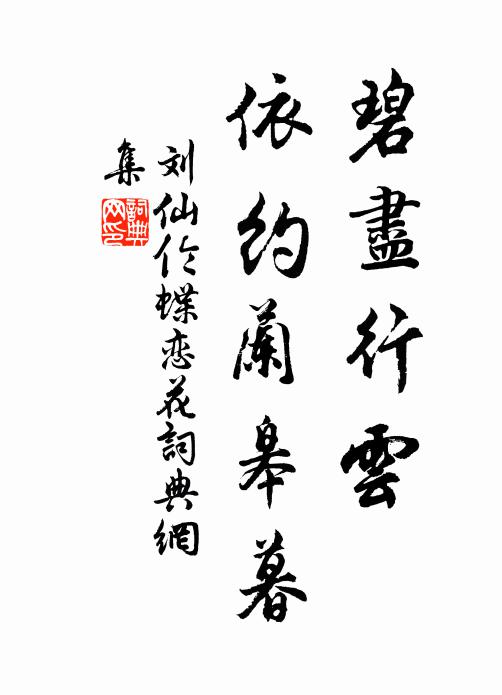 碧盡行雲
依約蘭皋暮
刘仙伦蝶恋花詞典網
集
詞典网印